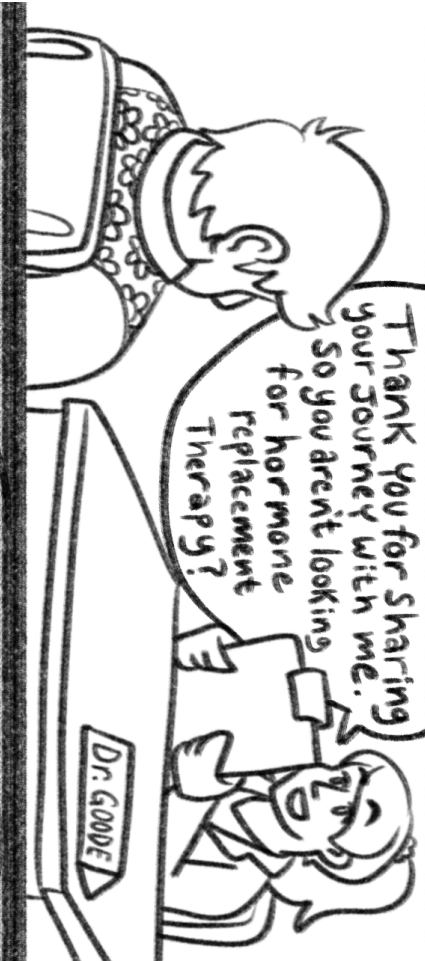 Thank you for sharing
your Journey with me.
So you aren't looking
for hormone
replacement
Therapy?
Dr. GOODE